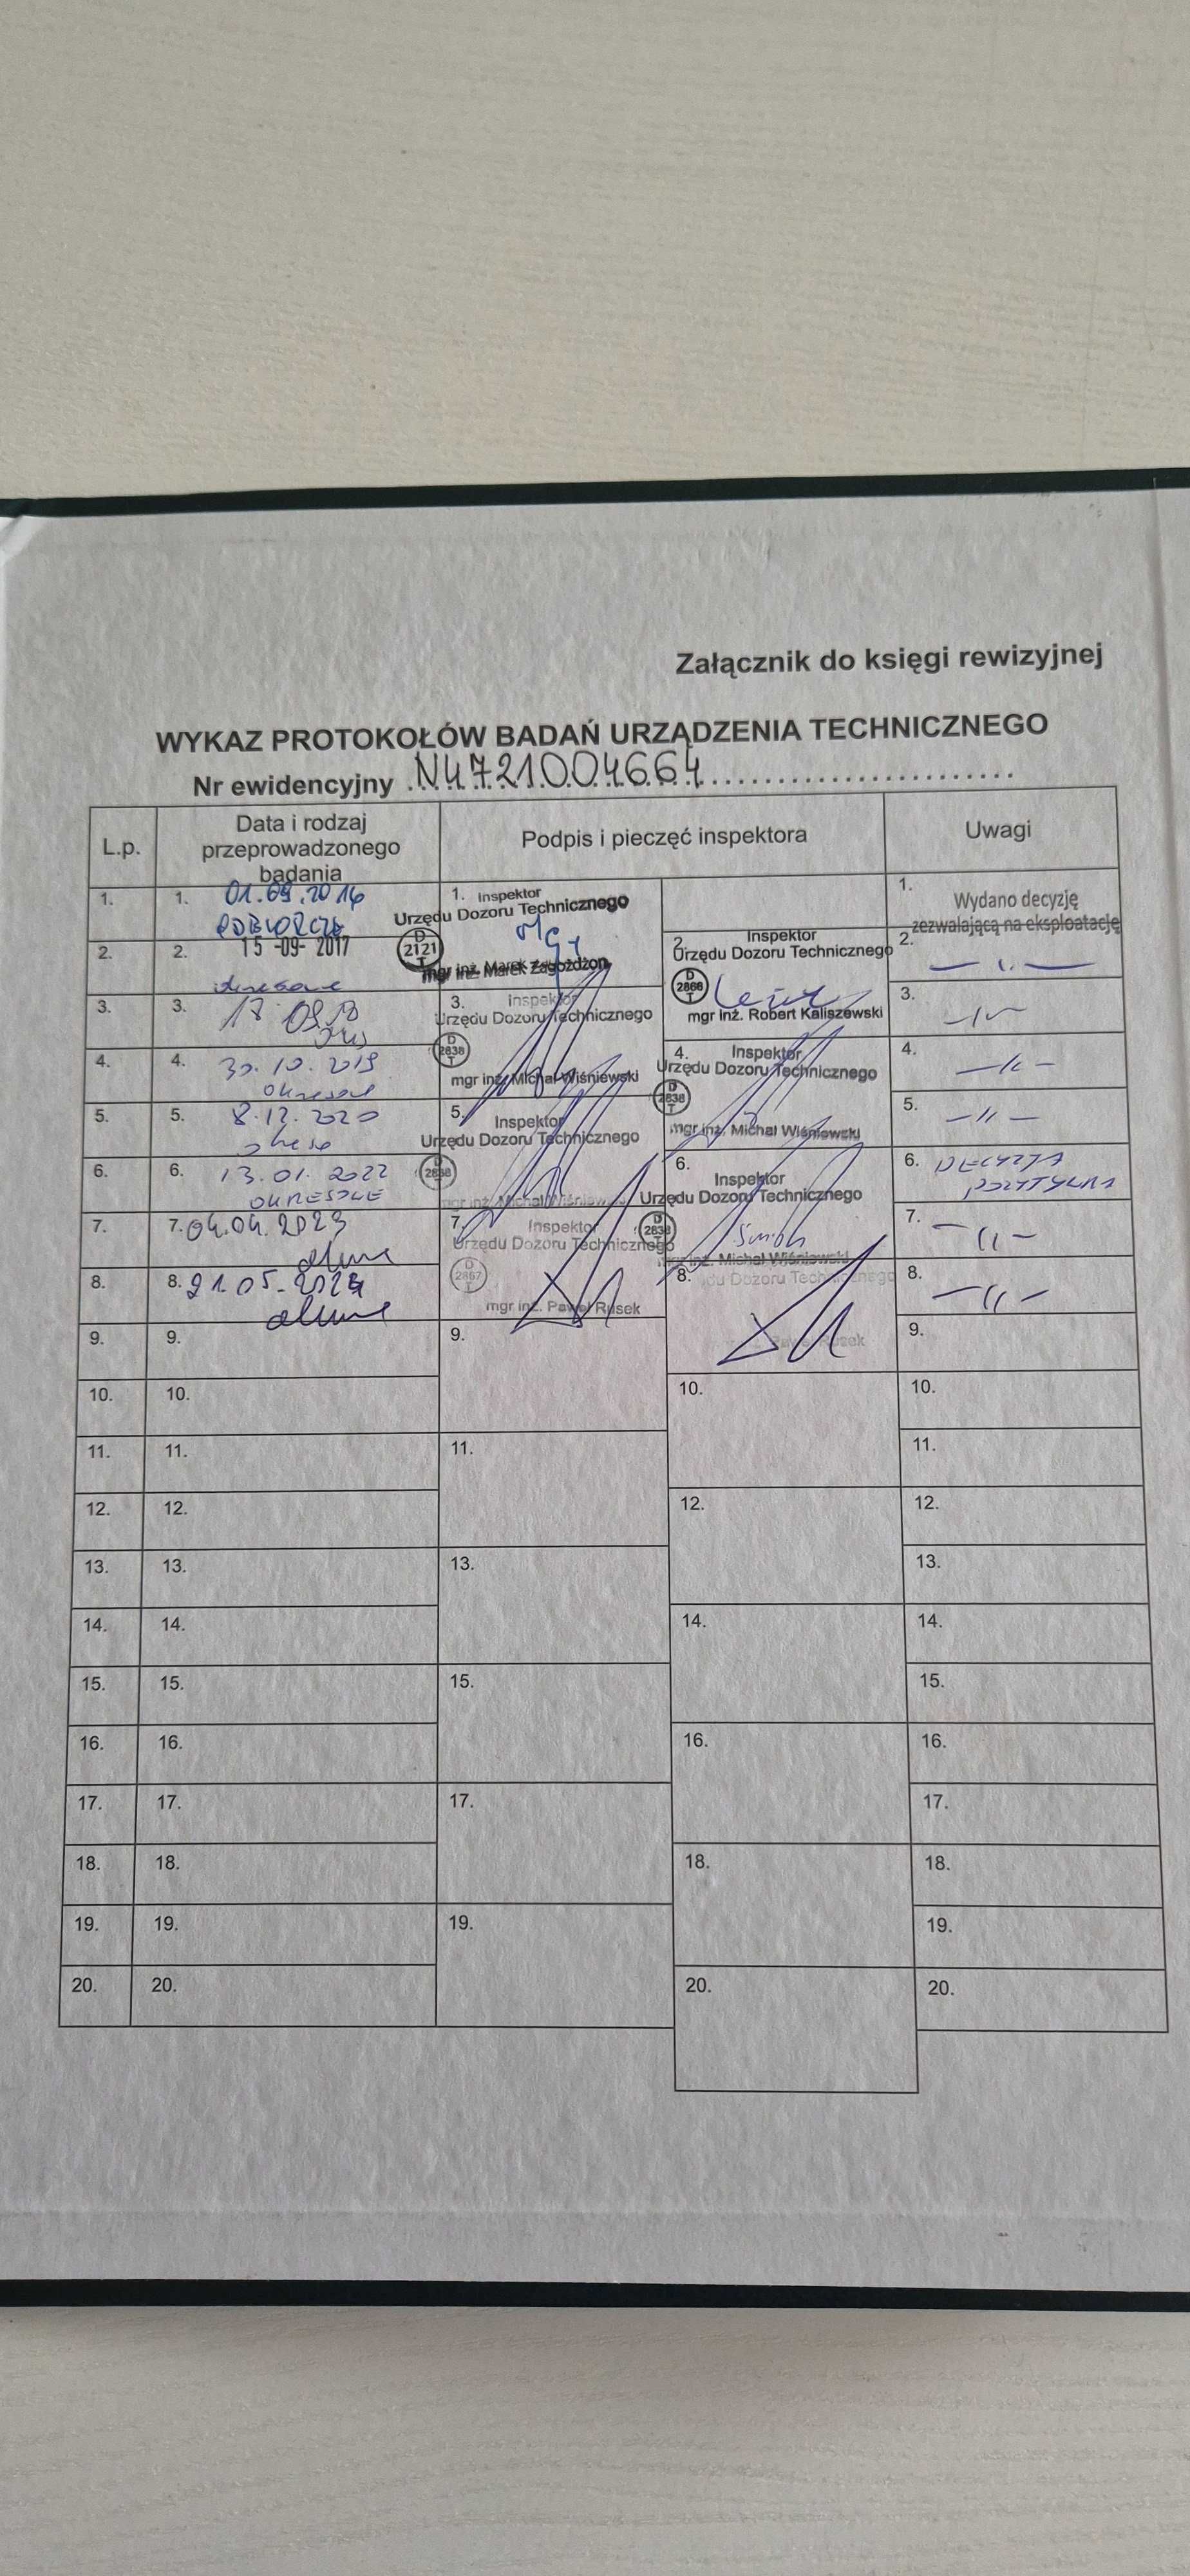 Załącznik do księgi rewizyjnej
WYKAZ PROTOKOŁÓW BADAŃ URZĄDZENIA TECHNICZNEGO
Nr ewidencyjny N4721004664
L.p.
Data i rodzaj
przeprowadzonego
badania
Podpis i pieczęć inspektora
Uwagi
1.
1. 01.09.2016
ODBIORCZE
1. Inspektor
Urzędu Dozoru Technicznego
D
2121
T
mgr inż. Marek Zagożdżon
1.
Wydano decyzję
zezwalającą na eksploatację
2.
2. 15-09-2017
okresowe
2. Inspektor
Urzędu Dozoru Technicznego
D
2868
mgr inż. Robert Kaliszewski
2.
— ıı —
3.
3. 17.09.18
3. Inspektor
Urzędu Dozoru Technicznego
D
2838
T
mgr inż. Michał Wiśniewski
3.
4.
4. 30.10.2019
okresowe
4. Inspektor
Urzędu Dozoru Technicznego
D
2838
T
mgr inż. Michał Wiśniewski
4.
—ıı—
5.
5. 8.12.2020
5. Inspektor
Urzędu Dozoru Technicznego
D
2838
T
mgr inż. Michał Wiśniewski
5.
—ıı—
6.
6. 13.01.2022
OKRESOWE
6. Inspektor
Urzędu Dozoru Technicznego
D
2838
T
mgr inż. Michał Wiśniewski
6. DECYZJA
POZYTYWNA
7.
7. 04.04.2023
7. Inspektor
Urzędu Dozoru Technicznego
D
2867
T
mgr inż. Paweł Rusek
7.
—ıı—
8.
8. 21.05.2024
8. Urzędu Dozoru Technicznego
Paweł Rusek
8.
—ıı—
9.
9.
9.
9.
10.
10.
10.
10.
11.
11.
11.
11.
12.
12.
12.
12.
13.
13.
13.
13.
14.
14.
14.
14.
15.
15.
15.
15.
16.
16.
16.
16.
17.
17.
17.
17.
18.
18.
18.
18.
19.
19.
19.
19.
20.
20.
20.
20.